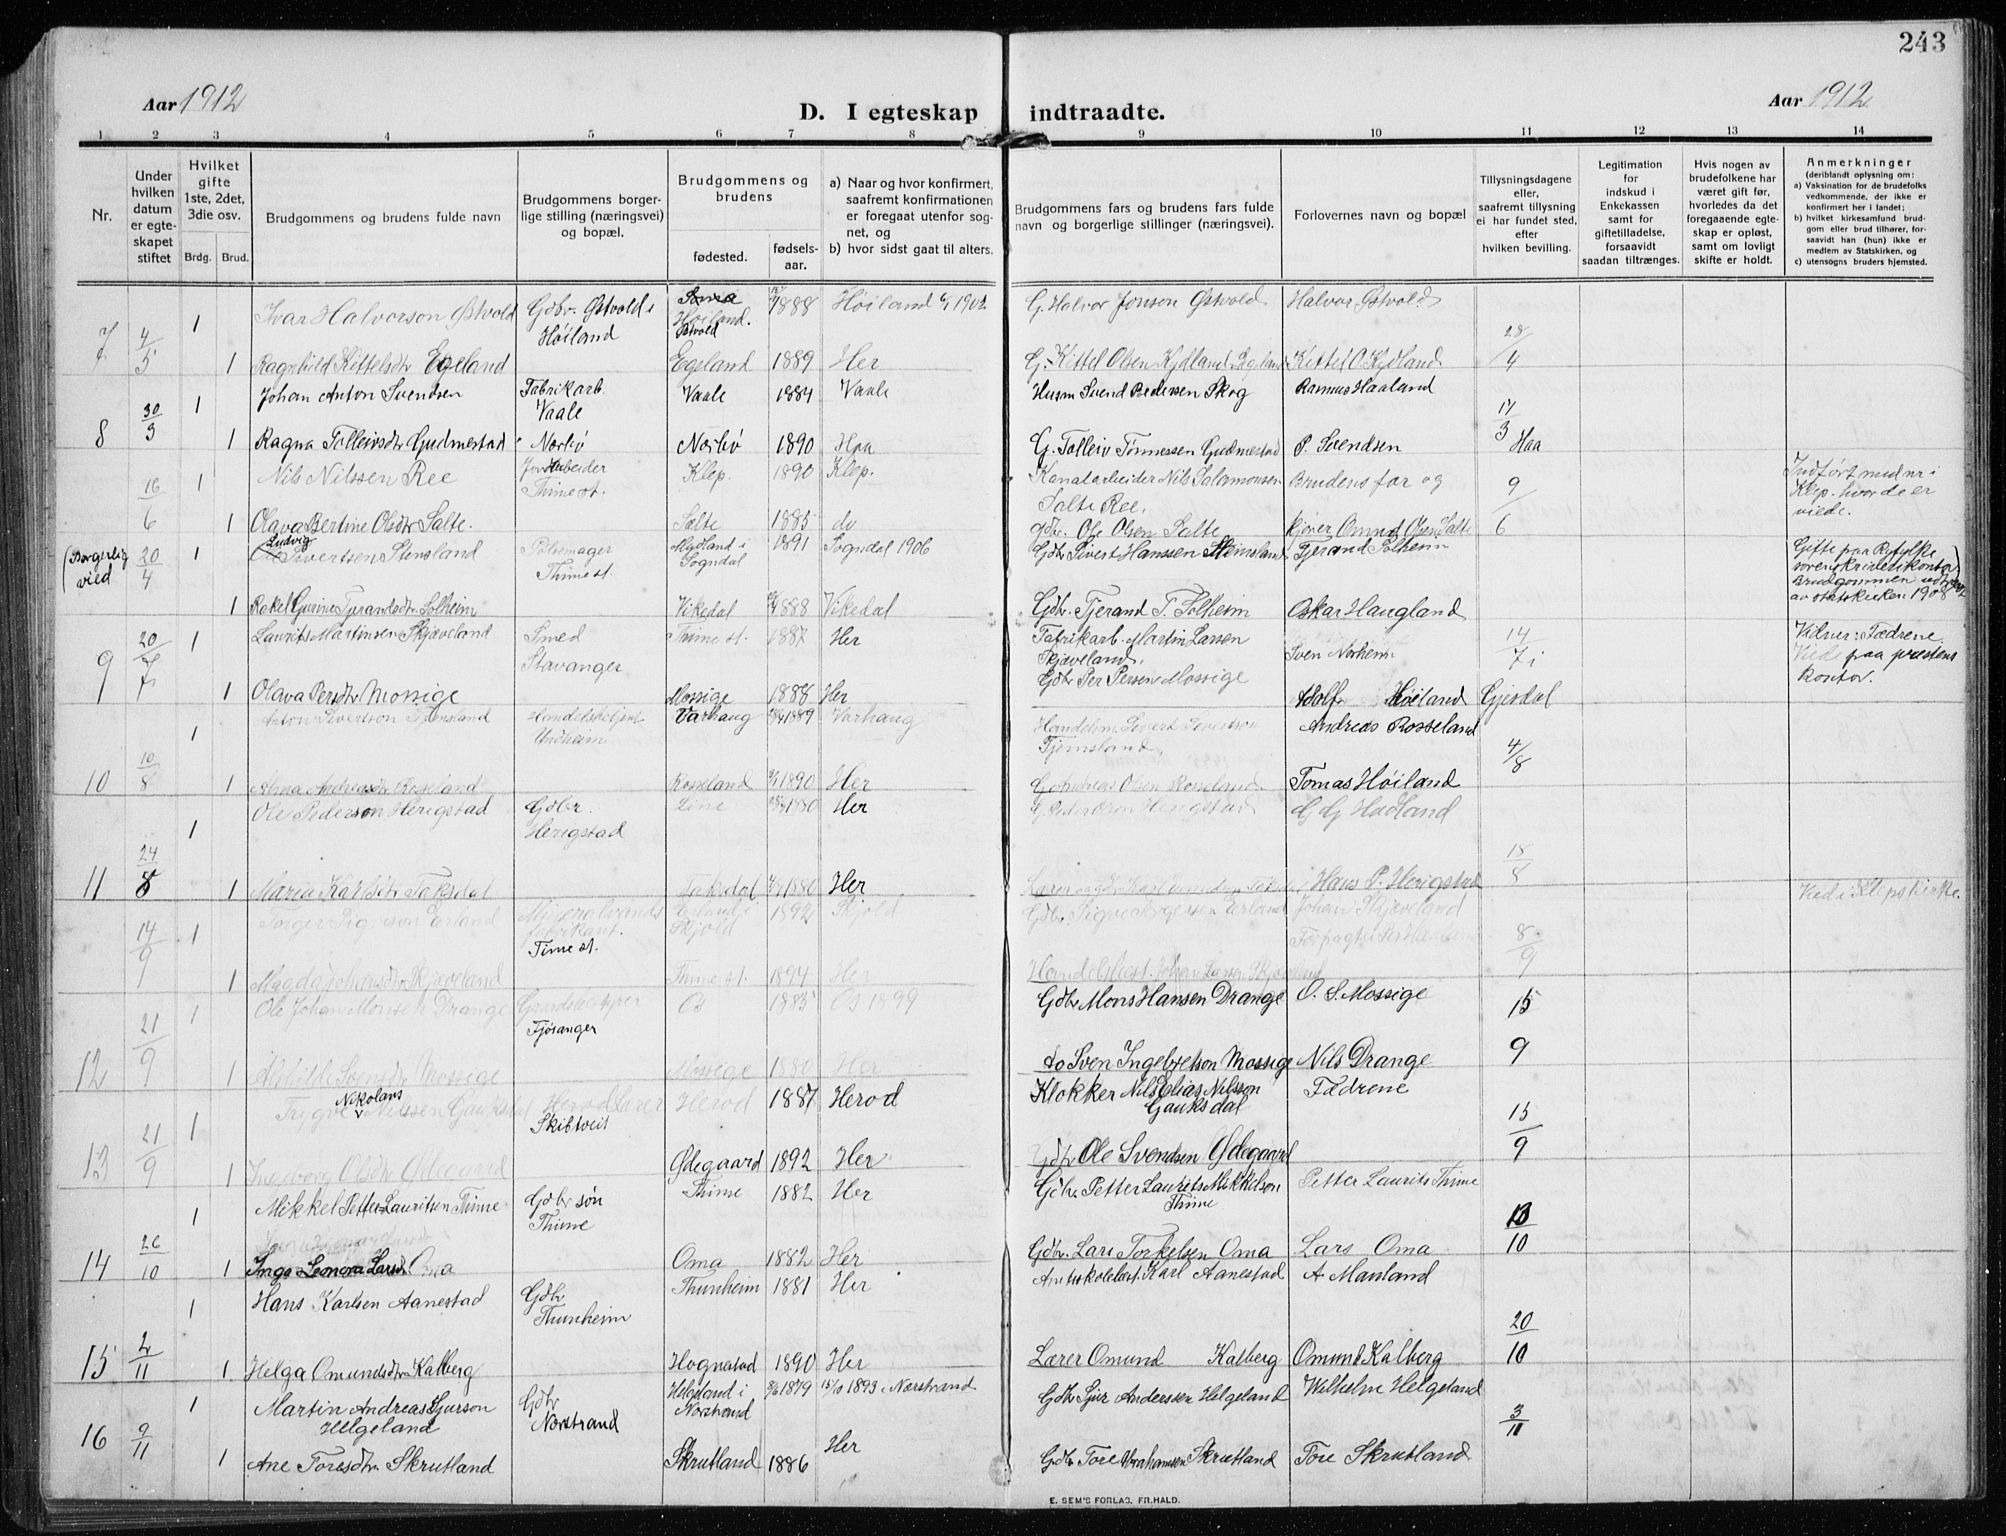 243
Aar 1912
D. I egteskap indtraadte.
Aar 1912
1 2 3 4 5 6 7 8 9 10 11 12 13 14
Nr.
Under hvilken datum er egteskapet stiftet
Hvilket gifte 1ste, 2det, 3die osv.
Brdg. Brud.
Brudgommens og brudens fulde navn
Brudgommens borgerlige stilling (næringsvei) og bopæl.
Brudgommens og brudens
fødested. fødselsaar.
a) Naar og hvor konfirmert, saafremt konfirmationen er foregaat utenfor sognet, og
b) hvor sidst gaat til alters.
Brudgommens fars og brudens fars fulde navn og borgerlige stillinger (næringsvei).
Forlovernes navn og bopæl
Tillysningsdagene eller, saafremt tillysning ei har fundet sted, efter hvilken bevilling.
Legitimation for indskud i Enkekassen samt for giftetilladelse, forsaavidt saadan tiltrænges.
Hvis nogen av brudefolkene har været gift før, hvorledes da det foregaaende egteskap er opløst, samt om lovligt skifte er holdt.
Anmerkninger
(deriblandt oplysning om:
a) Vaksination for de brudefolks vedkommende, der ikke er konfirmert her i landet;
b) hvilket kirkesamfund brudgom eller brud tilhører, forsaavidt han (hun) ikke er medlem av Statskirken, og
c) utensogns bruders hjemsted.
7 4/5 1 Ivar Halvorson Østvold Gdbr. Østvold i Høiland Høiland. Østvold 1888 Høiland 1902 G. Halvor Jonson Østvold Halvor Østvold 28/4
1 Ragnhild Kittelsdtr Egeland Egeland 1889 Her G. Kittel Olsen Kydland Egeland Kittel O Kydland
8 30/3 1 Johan Anton Svendsen Fabrikarb. Vaale Vaale 1884 Vaale Husm Svend Pedersen Skog Rasmus Haaland 17/3 Haa
1 Ragna Tolleivsdtr Gudmestad Nærbø Nærbø 1890 Haa G. Tolleiv Tønnessen Gudmestad P. Svendsen
16/6 1 Nils Nilssen Ree Jordarbeider Thime st. Klep. 1890 Klep. Kanalarbeider Nils Salomonsen Salte Ree. Brudens far og 9/6 Indført uden nr i Klep. hvor de er viede.
1 Olava Bertine Olsdtr Salte. Salte 1885 do gdbr. Ole Olsen Salte kjører Omund Olsen Salte
(Borgerlig vied 20/4 1 Ludvig Sivertsen Stensland Pølsemager Thime st. Mydland i Sogndal 1891 Sogndal 1906 Gdbr Sivert Hanssen Steinsland Tjerand Solheim Gifte paa Ryfylke sorenskriverikontor) Brudgommen udtraadt av statskirken 1908
1 Rakel Gurine Tjerandsdtr Solheim Vikedal 1888 Vikedal Gdbr. Tjerand T. Solheim Oskar Haugland
9 20/7 1 Laurits Martinsen Skjæveland Smed Stavanger Thime st. 1887 Her Fabrikarb. Martin Larsen Skjæveland. Sven Norheim 14/7 i Gjesdal Vitner: Fædrene. Viede paa prestens kontor.
1 Olava Persdtr Mossige Mossige 1888 Her Gdbr Per Persen Mossige Adolf Høiland
10 10/8 1 Anton Sivertson Tjemsland Handelsbetjent Undheim Varhaug 1889 Varhaug Handelsm. Sivert Sivertson Tjemsland. Andreas Rosseland 4/8
1 Alma Andreasdtr Rosseland Rosseland 1890 Her G. Andreas Olsen Rosseland Tomas Høiland
11 24/8 1 Ole Pederson Herigstad Gdbr. Herigstad Line 1880 Her G. Peder Olsen Herigstad G G Hadland 18/8
1 Maria Karlsdtr Taksdal Taksdal 1880 Her Hans P. Herigstad
14/9 1 Torger Sigveson Erland Mineralvandsfabrikant. Time st. Erland i Skjold 1892 Skjold Gdbr. Sigve Torgersen Erland Johan Skjæveland 8/9 Vied i Kleps kirke.
1 Magda Johansdtr Skjæveland Thime st. 1894 Her Handelsbest. Johan Larsen Skjæveland
12 21/9 1 Ole Johan Monsen Drange Fjøsanger Os 1885 Os 1899 Gdbr Mons Hansen Drange O. S. Mossige 15/9
1 Svensdtr Mossige Mossige 1880 Her do Sven Ingebretson Mossige Nils Drange
13 21/9 1 Trygve Nikolaus Nilssen Gauksdal Herod Lærer Skibtveit Herod 1887 Herod Klokker Nils Elias Nilsson Gauksdal Fædrene 15/9
1 Ingeborg Olsdtr Ødegaard Ødegaard 1892 Her Gdbr Ole Svendsen Ødegaard
14 26/10 1 Mikkel Petter Lauritsen Thime Gdbr søn Thime Thime 1882 Her Gdbr. Petter Laurits Mikkelson Thime Petter Laurits Thime 13/10
1 Inga Lenora Larsd. Oma Oma 1882 Her Gdbr. Lars Torkelsen Oma Lars Oma
15 2/11 1 Hans Karlsen Aanestad Gdbr Thunheim Thunheim 1881 Her Amtsskolebest. Karl Aanestad A Mauland 20/10
1 Helga Omundsdtr Kalberg Hognstad 1890 Her Lærer Omund Kalberg Omund Kalberg
16 9/11 1 Martin Andreas Sjurson Helgeland Gdbr Nærstrand Helgeland i Nærstrand 1879 15/10 1893 i Nærstrand Gdbr Sjur Anderssen Helgeland Wilhelm Helgeland 3/11
1 Ane Toresdtr Skrutland Skrutland 1886 Her Gdbr Tore Abrahamsen Skrutland Tore Skrutland
E. SEM'S FORLAG. FR.HALD.